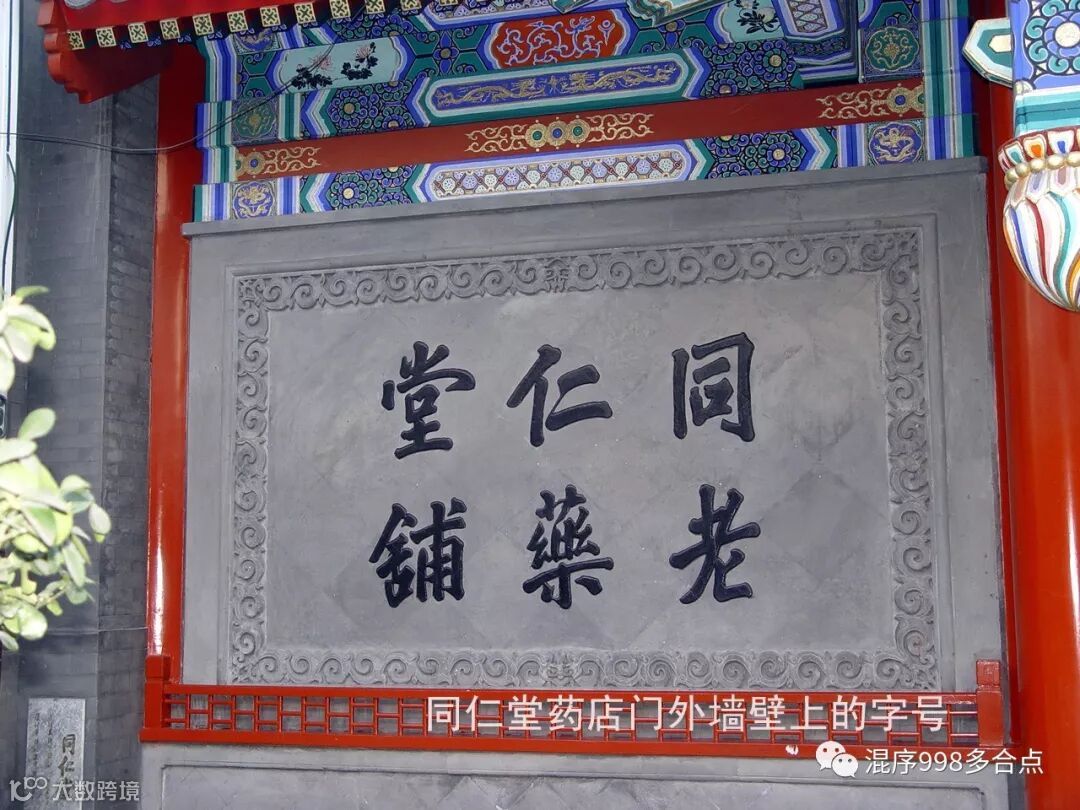 同仁堂
老藥舖
同仁堂药店门外墙壁上的字号
同仁
混序998多合点
大数跨境